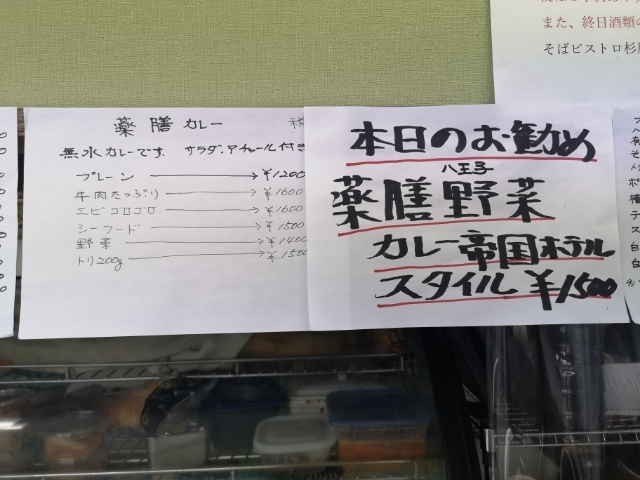 また、終日酒類の
そばビストロ
薬膳カレー
無水カレーです。サラダ、アチャール付き
プレーン → ¥1200
牛肉たっぷり → ¥1600
エビゴロゴロ → ¥1600
シーフード → ¥1500
野菜 → ¥1400
トリ200g → ¥1500
本日のお勧め
八王子
薬膳野菜
カレー帝国ホテル
スタイル ¥1500